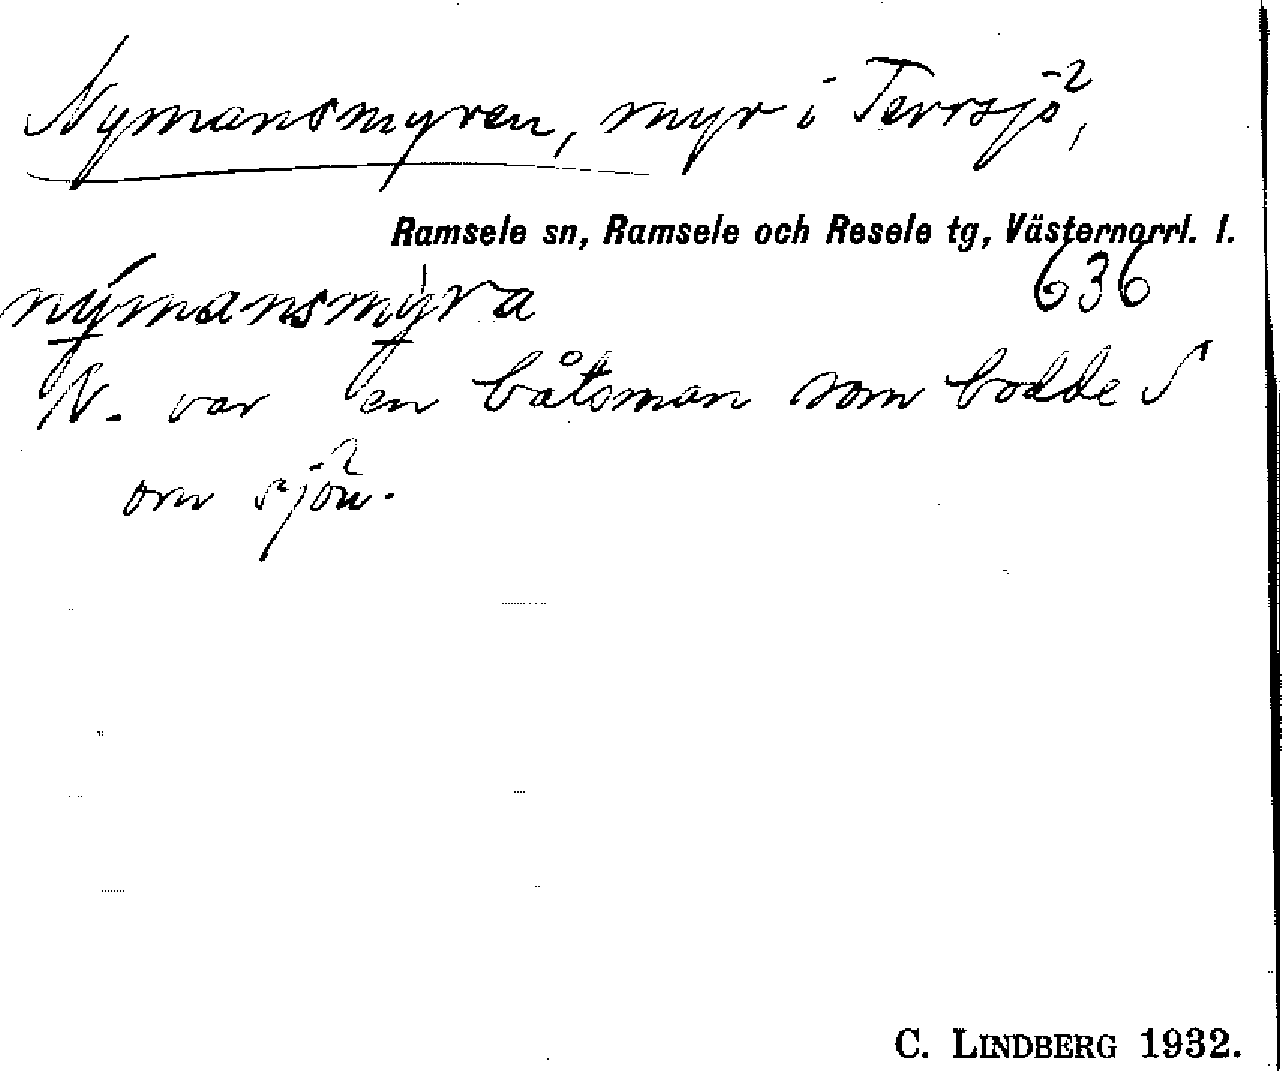 Nymansmyren, myr i Terrsjö,
Ramsele sn, Ramsele och Resele tg, Västernorrl. l.
nýmansmỳra 636
N. var en båtsman som bodde S
om sjön.
C. LINDBERG 1932.